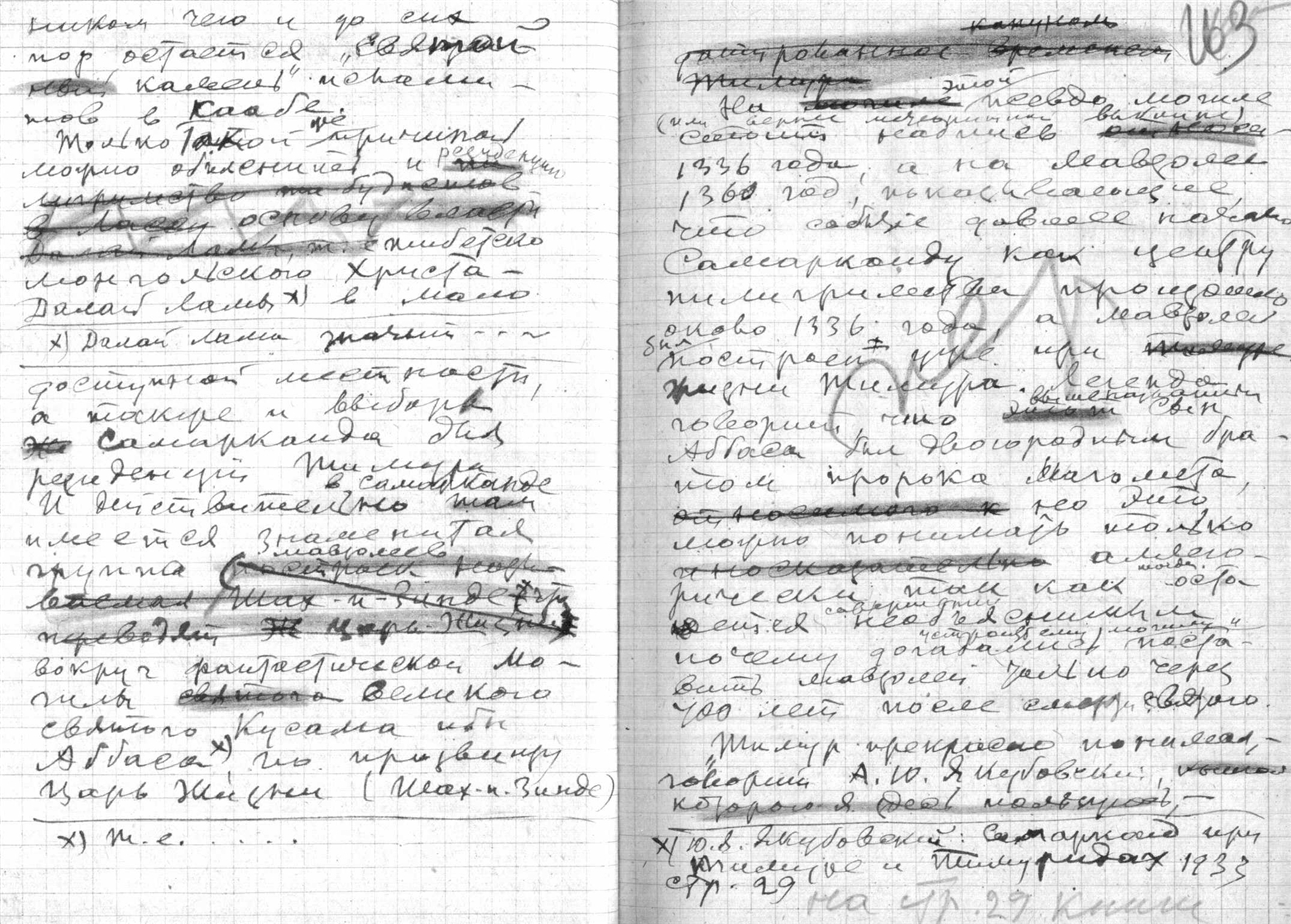 ником чего и до сих
пор остается „Святой
камень" ислами-
тов в Каабе.
Только такой же причиной
можно объяснить и резиденцию
основу
т. е. тибетско
монгольского Христа-
Далай Ламы х) в мало
х) Далай лама значит - - -
доступной местности,
а также и выбора
Самарканда для
резиденции Тимура
в Самарканде
И действительно там
имеется знаменитая
мавзолеев
группа
Шах-и-Зинде (что
переводят царь Жизни)
вокруг фантастической мо-
гилы святого великого
святого Кусама ибн
Аббаса х) по прозвищу
Царь Жизни (Шах-и-Зинде)
х) т. е. . . . . .
163
кануном
датированная временем
Тимура
этой
На могиле псевдо могиле
(или верней
надпись
1336 года, а на мавзолее
1360 год, показывающие,
что событие давшее начало
Самарканду как центру
пилигримства произошло
около 1336 года, а мавзолей
был
построен уже при Тимуре
жизни Тимура. Легенда
вышеназванный
говорит, что этот сын
Аббаса был двоюродным бра-
том пророка Магомета,
относимого к но это
можно понимать только
иносказательно аллего-
рически, так как тогда оста-
совершенно
ется необъяснимым
почему догадались поста-
вить мавзолей только через
700 лет после смерти святого.
„Тимур прекрасно понимал,-
говорит А. Ю. Якубовский,
которого я здесь пользуюсь,-
х) Ю. Я. Якубовский: Самарканд при
Тимуре и Тимуридах 1933
стр. 29
на стр. 29 книги